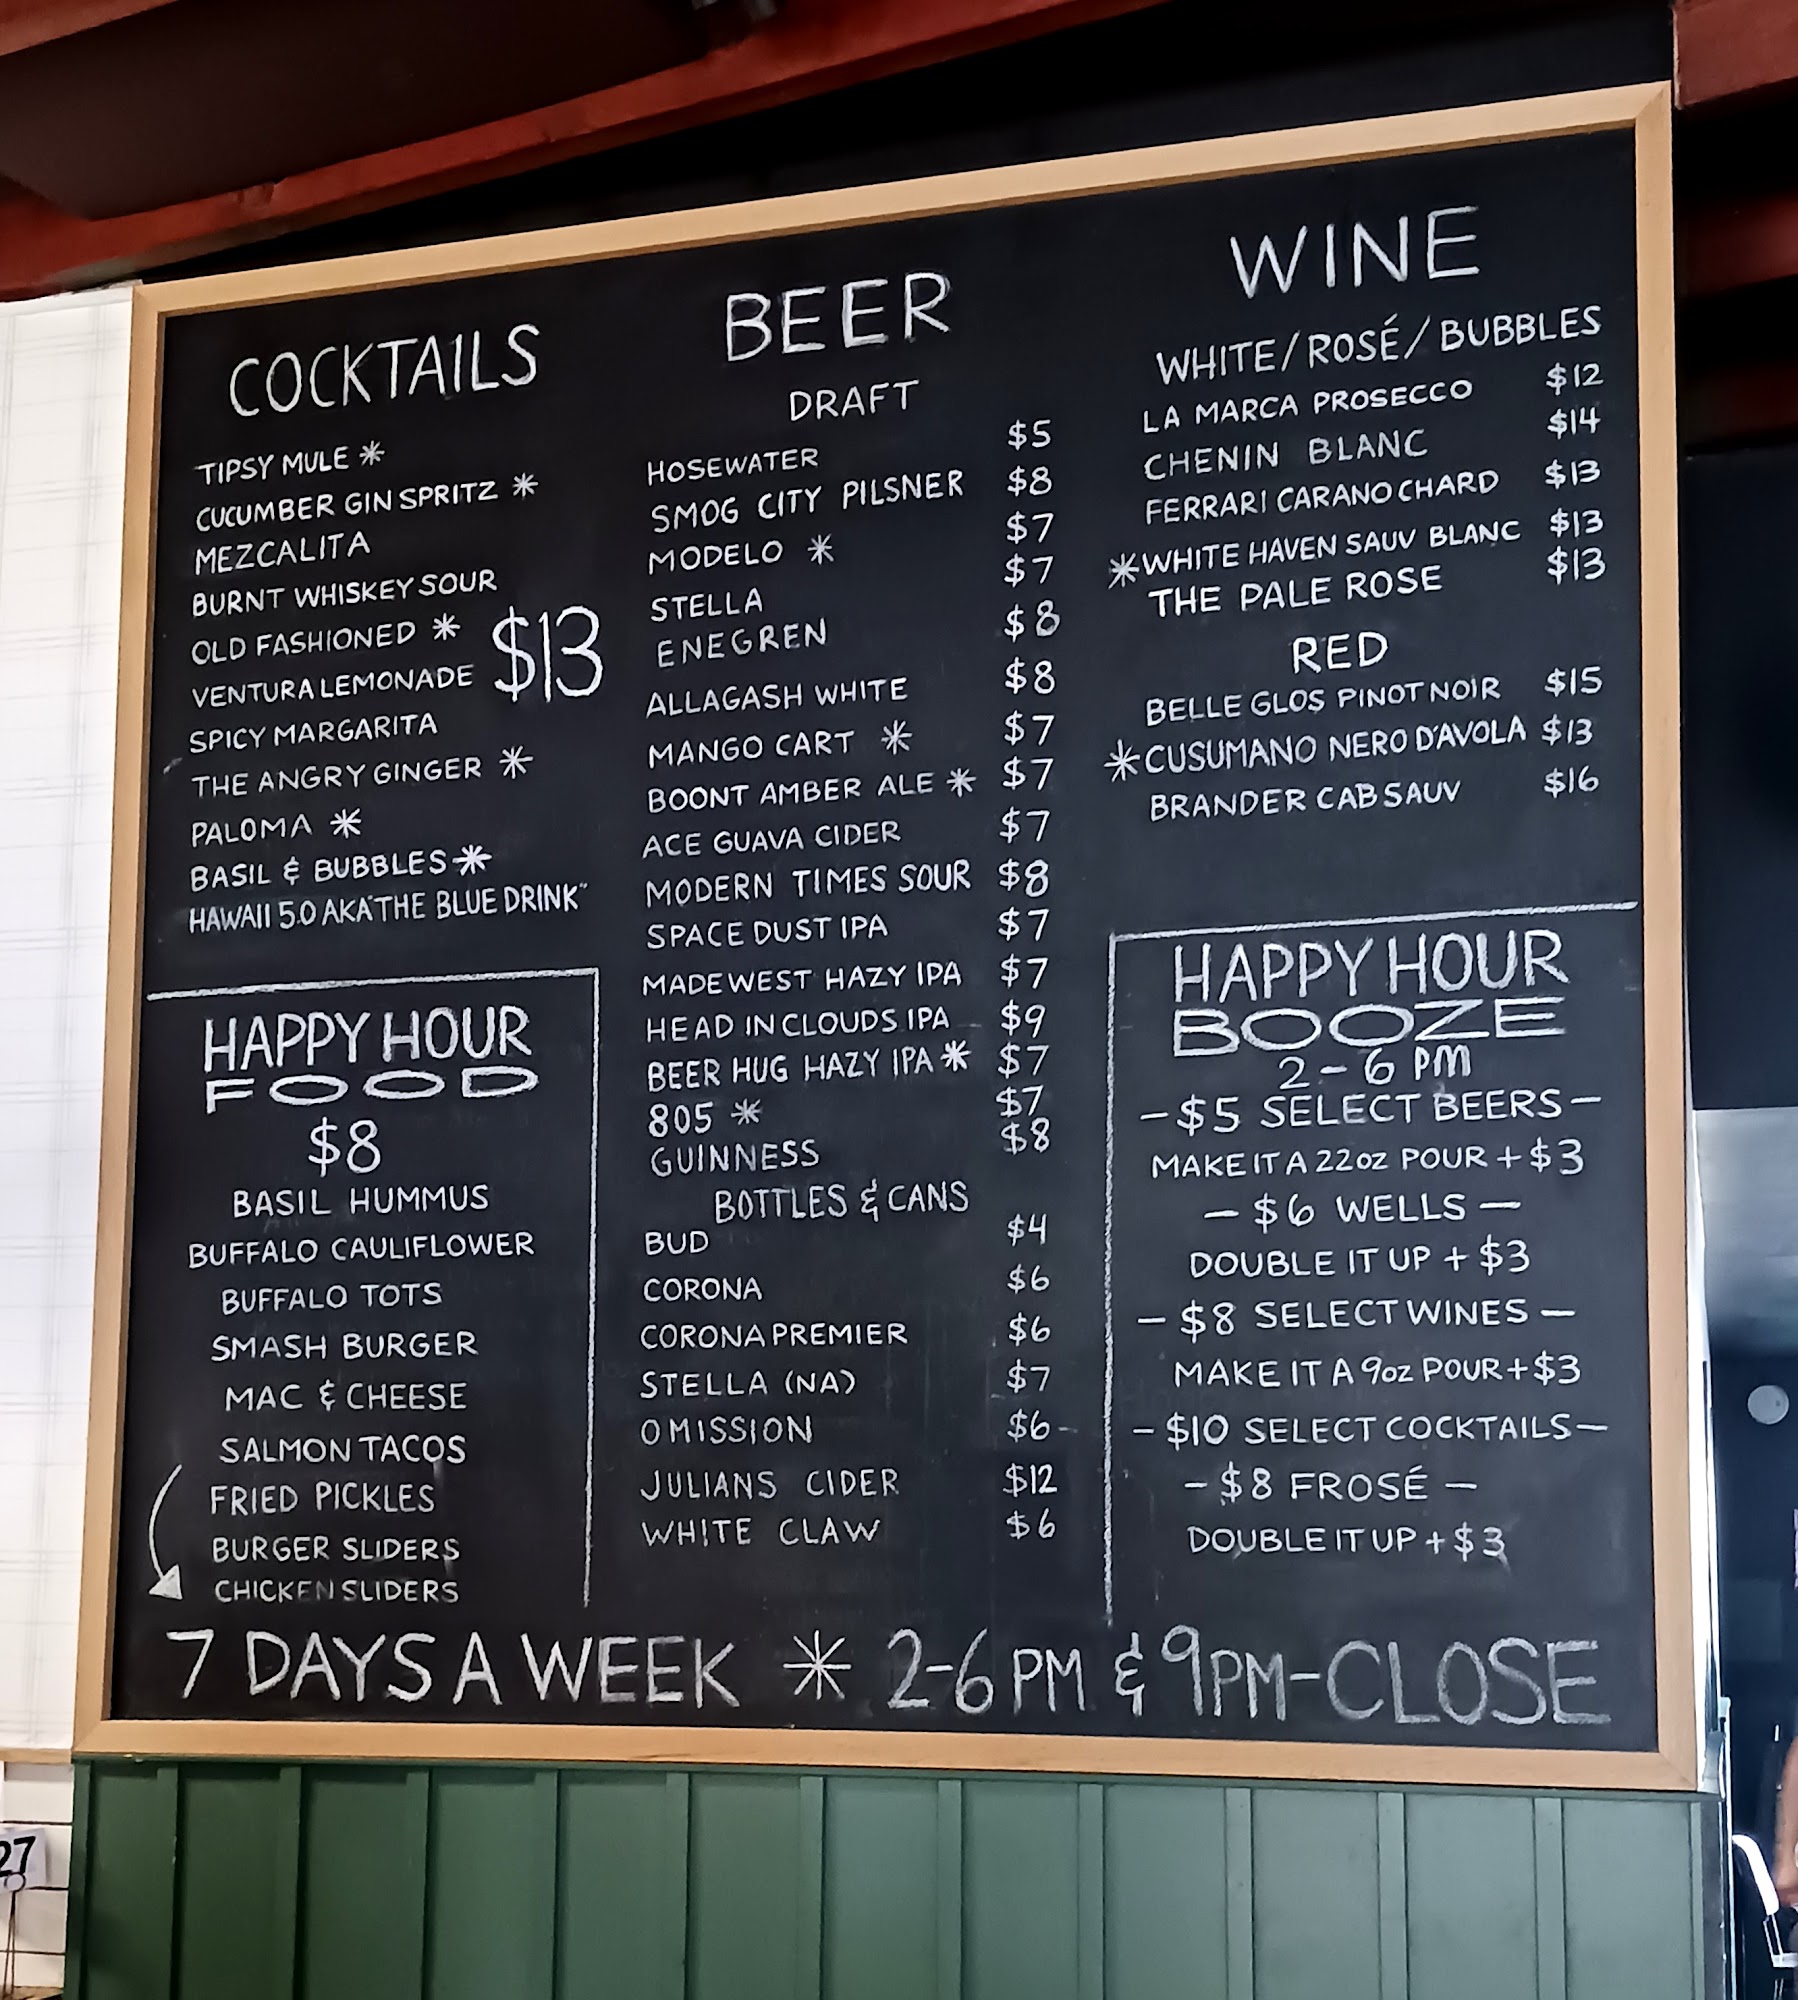 COCKTAILS
TIPSY MULE *
CUCUMBER GIN SPRITZ *
MEZCALITA
BURNT WHISKEY SOUR
OLD FASHIONED *
$13
VENTURA LEMONADE
SPICY MARGARITA
THE ANGRY GINGER *
PALOMA *
BASIL & BUBBLES *
HAWAII 5.0 AKA "THE BLUE DRINK"
HAPPY HOUR
FOOD
$8
BASIL HUMMUS
BUFFALO CAULIFLOWER
BUFFALO TOTS
SMASH BURGER
MAC & CHEESE
SALMON TACOS
FRIED PICKLES
BURGER SLIDERS
CHICKEN SLIDERS
BEER
DRAFT
HOSEWATER $5
SMOG CITY PILSNER $8
MODELO * $7
STELLA $7
ENEGREN $8
ALLAGASH WHITE $8
MANGO CART * $7
BOONT AMBER ALE * $7
ACE GUAVA CIDER $7
MODERN TIMES SOUR $8
SPACE DUST IPA $7
MADEWEST HAZY IPA $7
HEAD IN CLOUDS IPA $9
BEER HUG HAZY IPA * $7
805 * $7
GUINNESS $8
BOTTLES & CANS
BUD $4
CORONA $6
CORONA PREMIER $6
STELLA (NA) $7
OMISSION $6
JULIANS CIDER $12
WHITE CLAW $6
WINE
WHITE/ROSÉ/BUBBLES
LA MARCA PROSECCO $12
CHENIN BLANC $14
FERRARI CARANO CHARD $13
*WHITE HAVEN SAUV BLANC $13
THE PALE ROSE $13
RED
BELLE GLOS PINOT NOIR $15
*CUSUMANO NERO D'AVOLA $13
BRANDER CAB SAUV $16
HAPPY HOUR
BOOZE
2-6 PM
-$5 SELECT BEERS-
MAKE IT A 22oz POUR +$3
-$6 WELLS-
DOUBLE IT UP + $3
-$8 SELECT WINES-
MAKE IT A 9oz POUR +$3
-$10 SELECT COCKTAILS-
-$8 FROSÉ-
DOUBLE IT UP +$3
7 DAYS A WEEK * 2-6 PM & 9PM-CLOSE
27